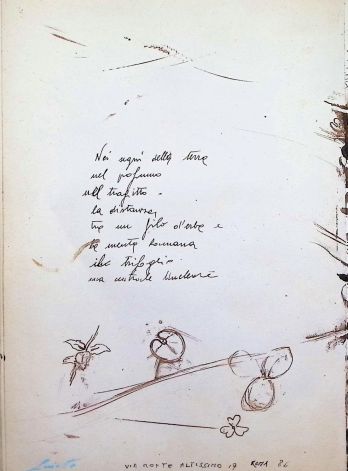 Nei segni della terra
nel profumo
nel trafitto
la distanza,
tra un filo d'erba e
la menta Romana
il trifoglio
una centrale nucleare
VIA MONTE ALTISSIMO 19 ROMA 86